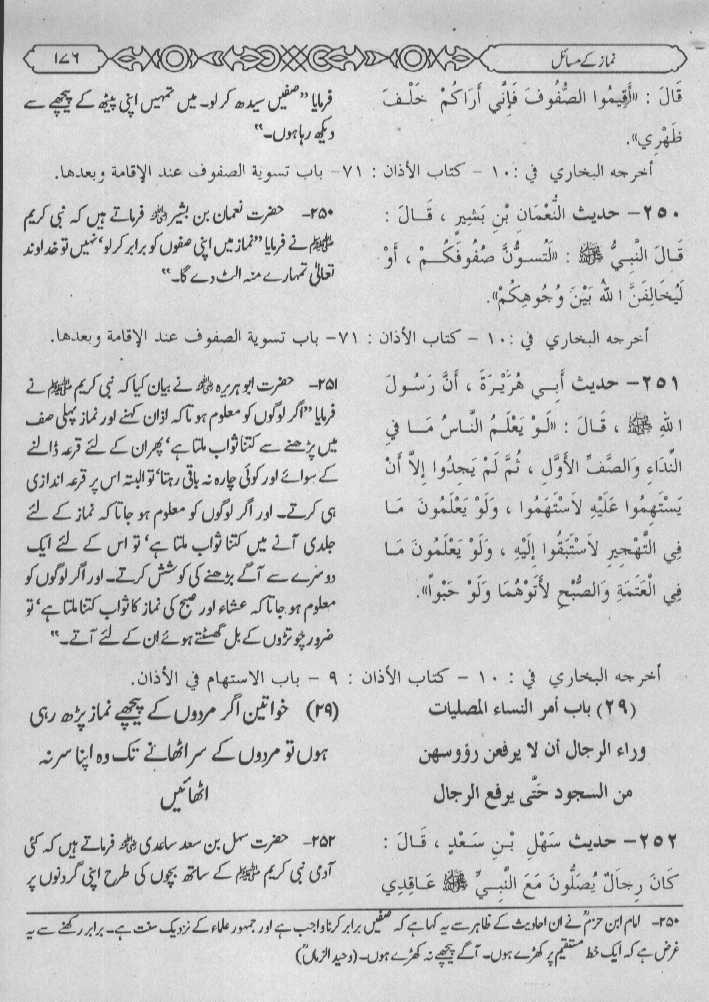 نماز کے مسائل
۱۷۶
قَالَ : «أَقِيمُوا الصُّفُوفَ فَإِنِّي أَرَاكُمْ خَلْفَ
ظَهْرِي».
فرمایا ”صفیں سیدھ کر لو۔ میں تمہیں اپنی پیٹھ کے پیچھے سے
دیکھ رہا ہوں۔“
أخرجه البخاري في : ١٠ - كتاب الأذان : ٧١- باب تسوية الصفوف عند الإقامة وبعدها.
٢٥٠- حديث النُّعْمَانِ بْنِ بَشِيرٍ ، قَالَ :
قَالَ النَّبِيُّ ﷺ : «لَتُسَوُّنَّ صُفُوفَكُمْ ، أَوْ
لَيُخَالِفَنَّ اللهُ بَيْنَ وُجُوهِكُمْ».
۲۵۰- حضرت نعمان بن بشیر رضی اللہ عنہ فرماتے ہیں کہ نبی کریم
ﷺ نے فرمایا ”نماز میں اپنی صفوں کو برابر کر لو‘ نہیں تو خداوند
تعالیٰ تمہارے منہ الٹ دے گا۔“
أخرجه البخاري في : ١٠ - كتاب الأذان : ٧١- باب تسوية الصفوف عند الإقامة وبعدها.
٢٥١- حديث أَبِي هُرَيْرَةَ ، أَنَّ رَسُولَ
اللهِ ﷺ ، قَالَ : «لَوْ يَعْلَمُ النَّاسُ مَا فِي
النِّدَاءِ وَالصَّفِّ الأَوَّلِ ، ثُمَّ لَمْ يَجِدُوا إِلاَّ أَنْ
يَسْتَهِمُوا عَلَيْهِ لاَسْتَهَمُوا ، وَلَوْ يَعْلَمُونَ مَا
فِي التَّهْجِيرِ لاَسْتَبَقُوا إِلَيْهِ ، وَلَوْ يَعْلَمُونَ مَا
فِي الْعَتَمَةِ وَالصُّبْحِ لأَتَوْهُمَا وَلَوْ حَبْواً».
۲۵۱- حضرت ابو ہریرہ رضی اللہ عنہ نے بیان کیا کہ نبی کریم ﷺ نے
فرمایا ”اگر لوگوں کو معلوم ہوتا کہ اذان کہنے اور نماز پہلی صف
میں پڑھنے سے کتنا ثواب ملتا ہے‘ پھر ان کے لئے قرعہ ڈالنے
کے سوائے اور کوئی چارہ نہ باقی رہتا‘ تو البتہ اس پر قرعہ اندازی
ہی کرتے۔ اور اگر لوگوں کو معلوم ہو جاتا کہ نماز کے لئے
جلدی آنے میں کتنا ثواب ملتا ہے‘ تو اس کے لئے ایک
دوسرے سے آگے بڑھنے کی کوشش کرتے۔ اور اگر لوگوں کو
معلوم ہو جاتا کہ عشاء اور صبح کی نماز کا ثواب کتنا ملتا ہے‘ تو
ضرور چوتڑوں کے بل گھسٹتے ہوئے ان کے لئے آتے۔“
أخرجه البخاري في : ١٠ - كتاب الأذان : ٩ - باب الاستهام في الأذان.
(٢٩) باب أمر النساء المصليات
وراء الرجال أن لا يرفعن رؤوسهن
من السجود حَتَّى يرفع الرجال
(۲۹) خواتین اگر مردوں کے پیچھے نماز پڑھ رہی
ہوں تو مردوں کے سر اٹھانے تک وہ اپنا سر نہ
اٹھائیں
٢٥٢- حديث سَهْلِ بْنِ سَعْدٍ ، قَالَ :
كَانَ رِجَالٌ يُصَلُّونَ مَعَ النَّبِيِّ ﷺ عَاقِدِي
۲۵۲- حضرت سہل بن سعد ساعدی رضی اللہ عنہ فرماتے ہیں کہ کئی
آدمی نبی کریم ﷺ کے ساتھ بچوں کی طرح اپنی گردنوں پر
۲۵۰- امام ابن حزمؒ نے ان احادیث کے ظاہر سے یہ کہا ہے کہ صفیں برابر کرنا واجب ہے اور جمہور علماء کے نزدیک سنت ہے۔ برابر رکھنے سے یہ
غرض ہے کہ ایک خط مستقیم پر کھڑے ہوں۔ آگے پیچھے نہ کھڑے ہوں۔ (وحید الزماںؒ)